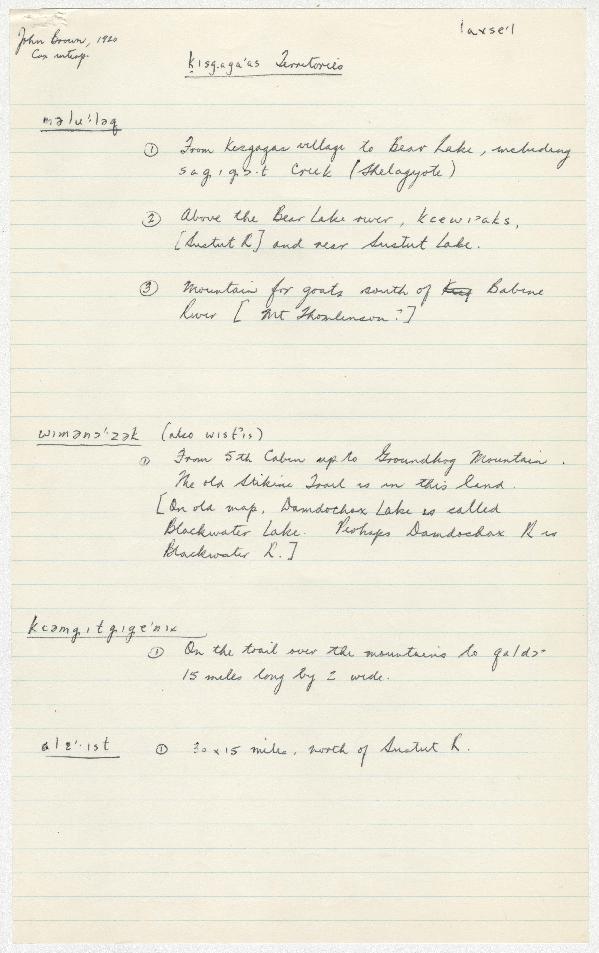 John Brown, 1920
Cox interp.
laxse'l
ḳisg.aga'as Territories
məlu'ləq
① From Kisgagas village to Bear Lake, including
sag.ıq̣ɔ.t Creek (Shelagyote)
② Above the Bear Lake river, kcewı>aks,
[Sustut R] and near Sustut Lake.
③ Mountain for goats south of Babine
River [Mt Thomlinson?]
wımənə'zək (also wıst'ıs)
① From 5th Cabin up to Groundhog Mountain.
The old Stikine Trail is in this land.
[On old map, Damdochax Lake is called
Blackwater Lake. Perhaps Damdochax R is
Blackwater R.]
kcəmg.ıtg.ıge'nıx
① On the trail over the mountains to galdɔ-
15 miles long by 2 wide.
alɛ'.ıst ① 30 x 15 miles, north of Sustut R.